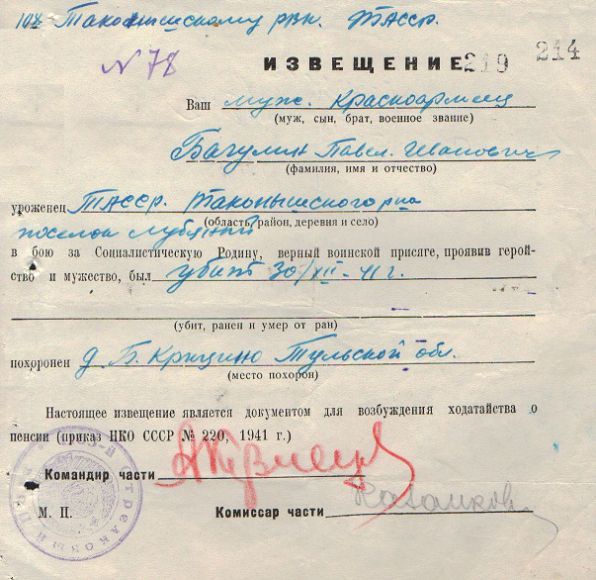 Такольшскому рвк. ТАССР.
N 78
ИЗВЕЩЕНИЕ 219 214
Ваш муж. Красноармеец
(муж, сын, брат, военное звание)
Багулин Павел. Иванович
(фамилия, имя и отчество)
уроженец ТАССР. Таконышского р-на
(область, район, деревня и село)
поселок Лубяной
в бою за Социалистическую Родину, верный воинской присяге, проявив герой-
ство и мужество, был убит 30/XII-41 г.
(убит, ранен и умер от ран)
похоронен д. Б. Крищино Тульской обл.
(место похорон)
Настоящее извещение является документом для возбуждения ходатайства о
пенсии (приказ НКО СССР № 220, 1941 г.)
Командир части
М. П. Комиссар части